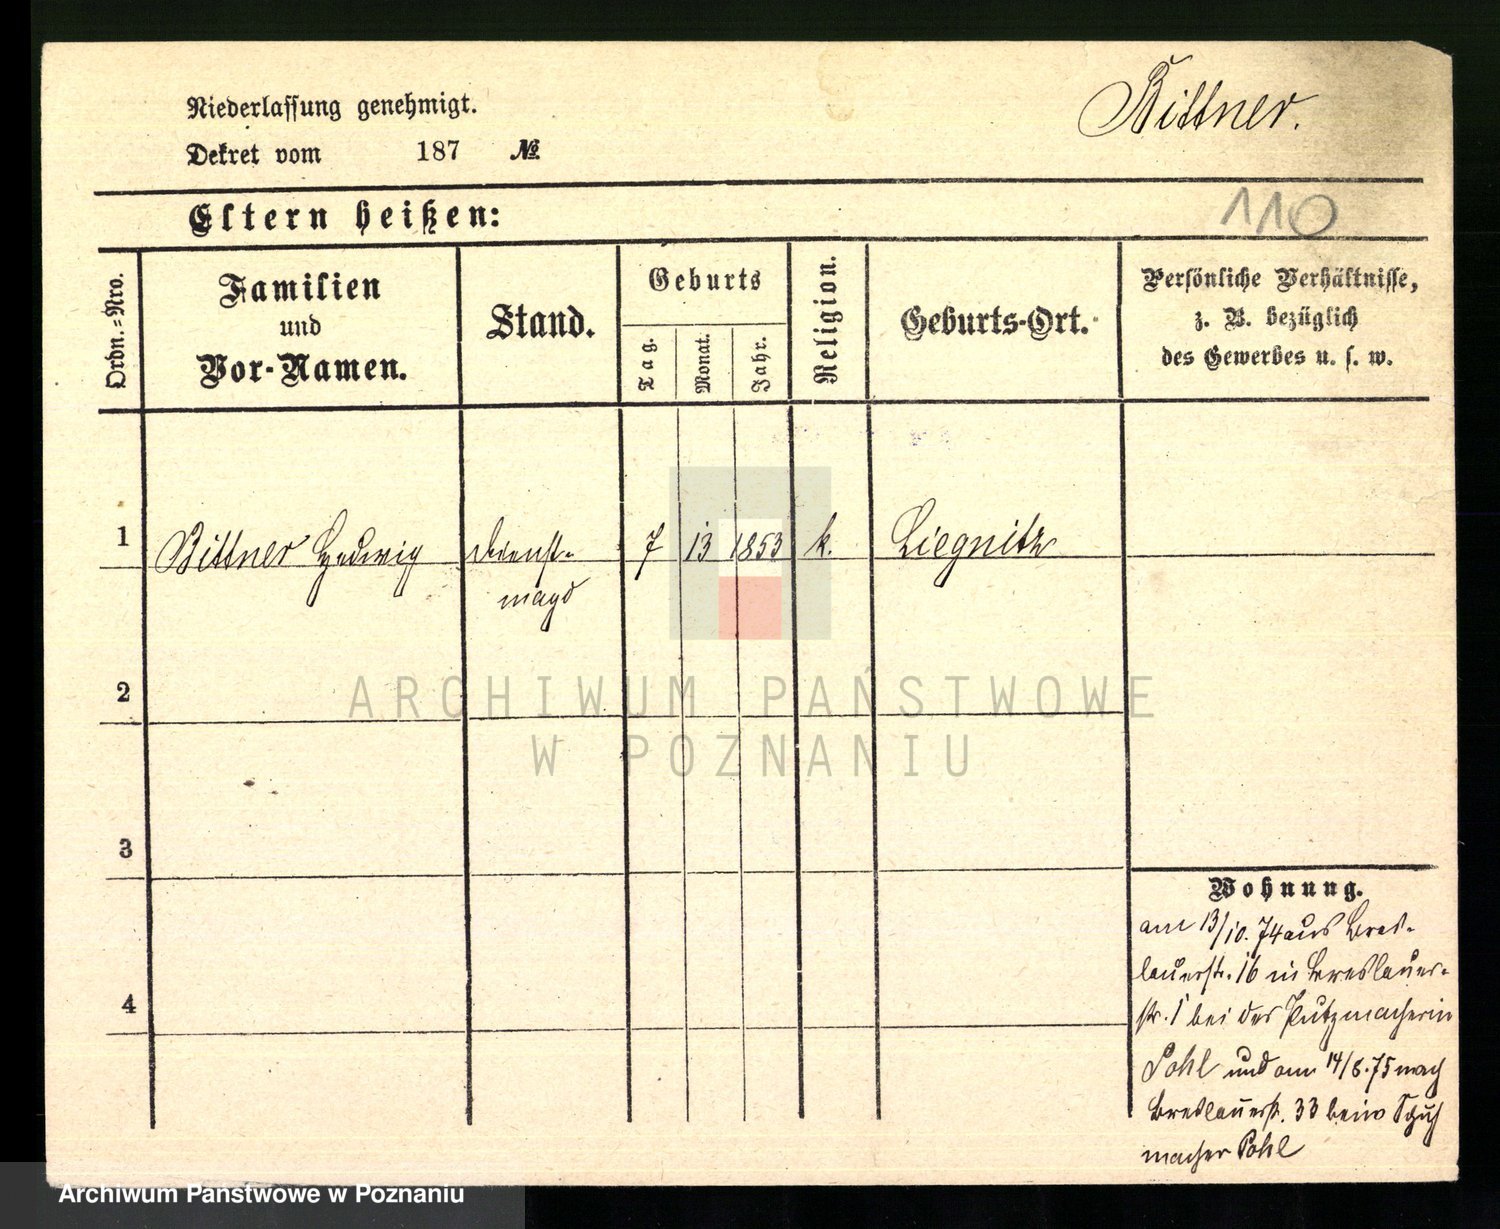 Bittner.
Niederlassung genehmigt.
Dekret vom 187 №
110
Eltern heißen:
Ordn.=Nro.
Familien
und
Vor-Namen.
Stand.
Geburts
Tag.
Monat.
Jahr.
Religion.
Geburts-Ort.
Persönliche Verhältnisse,
z. B. bezüglich
des Gewerbes u. s. w.
1 Bittner Hedwig Dienst- 7 13 1853 k. Liegnitz
magd
2
3
4
Wohnung.
am 13/10. 74 aus Bres-
lauerstr. 16 in Breslauer-
str. 1 bei der Putzmacherin
Pohl und am 14/8. 75 nach
Breslauerst. 33 beim Schuh
macher Pohl
ARCHIWUM PAŃSTWOWE
W POZNANIU
Archiwum Państwowe w Poznaniu